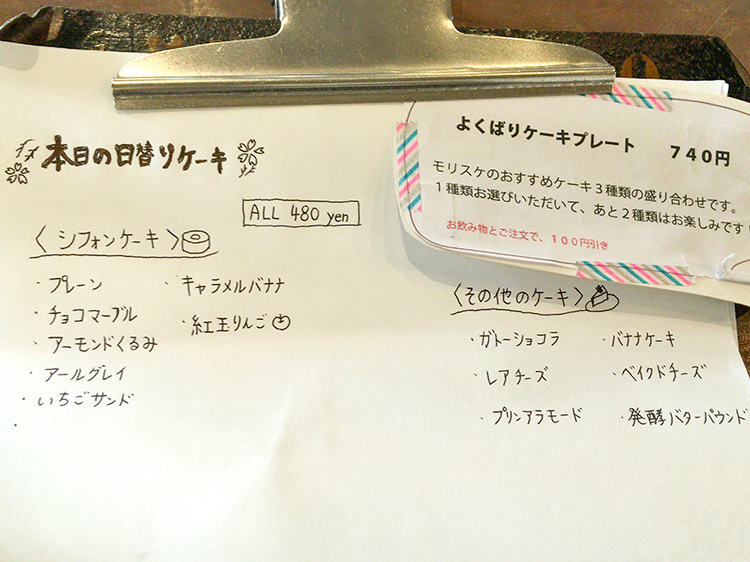 本日の日替りケーキ
ALL 480 yen
〈シフォンケーキ〉
・プレーン
・チョコマーブル
・アーモンドくるみ
・アールグレイ
・いちごサンド
・
・キャラメルバナナ
・紅玉りんご
よくばりケーキプレート 740円
モリスケのおすすめケーキ3種類の盛り合わせです。
1種類お選びいただいて、あと2種類はお楽しみです!
お飲み物とご注文で、100円引き
〈その他のケーキ〉
・ガトーショコラ
・レアチーズ
・プリンアラモード
・バナナケーキ
・ベイクドチーズ
・発酵バターパウンド